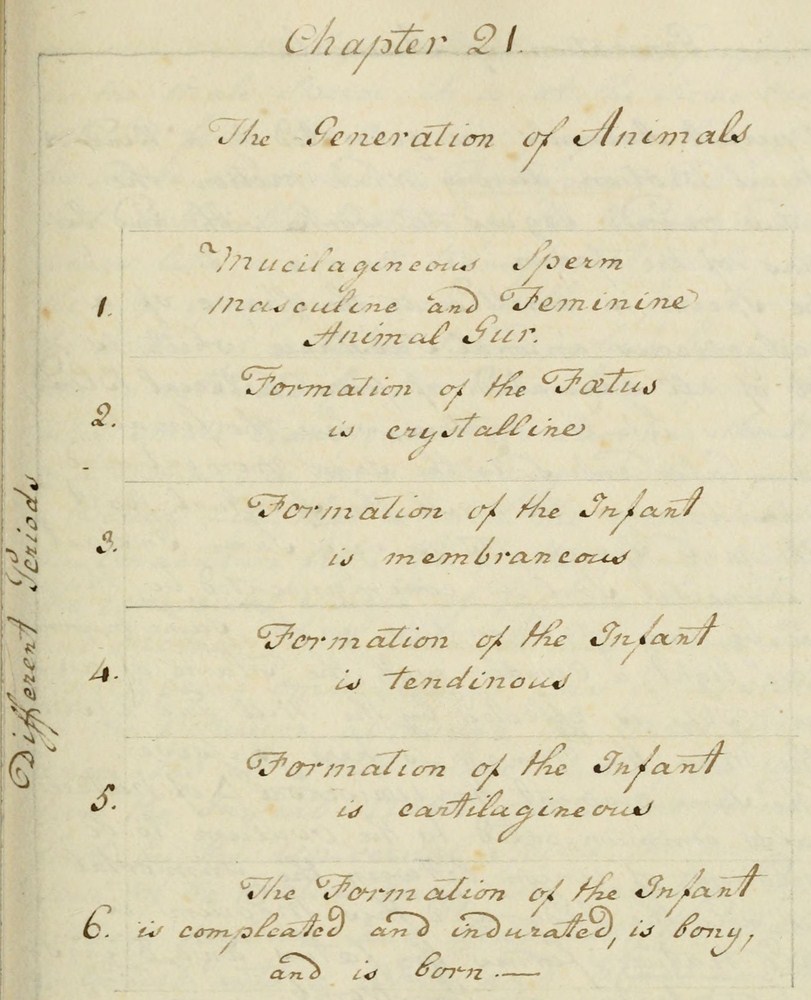 Chapter 21.
The Generation of Animals
Different Periods
Mucilagineous Sperm
1. masculine and Feminine
Animal Gur.
Formation of the Fœtus
2. is crystalline
Formation of the Infant
3. is membraneous
Formation of the Infant
4. is tendinous
Formation of the Infant
5. is cartilagineous
The Formation of the Infant
6. is compleated and indurated, is bony,
and is born. —